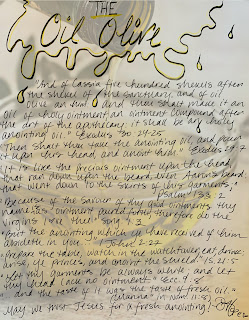 THE
Oil Olive
"And of Cassia five hundred shekels after
the shekel of the sanctuary, and of oil
olive an hin: and thou shalt make it an
Oil of holy ointment, an ointment compound after
the art of the apothecary: it shall be an holy
anointing oil." Exodus 30:24-25
Then shalt thou take the anointing oil, and pour
it upon his head, and anoint him." Exodus 29:7
"It is like the precious ointment upon the head,
that ran down upon the beard, even Aaron's beard:
that went down to the skirts of his garments;"
Psalms 133:2
"Because of the savour of thy good ointments thy
name is as ointment poured forth, therefore do the
virgins love thee." Song 1:3
"But the anointing which ye have received of him
abideth in you..." 1 John 2:27
"Prepare the table, watch in the watchtower, eat, drink:
arise, ye princes, and anoint the shield." Is. 21:5
"Let thy garments be always white; and let
thy head lack no ointment." Ecc. 9:8
"... and the taste of it was the taste of fresh oil."
(manna) Num. 11:8
May we trust Jesus for a fresh anointing!